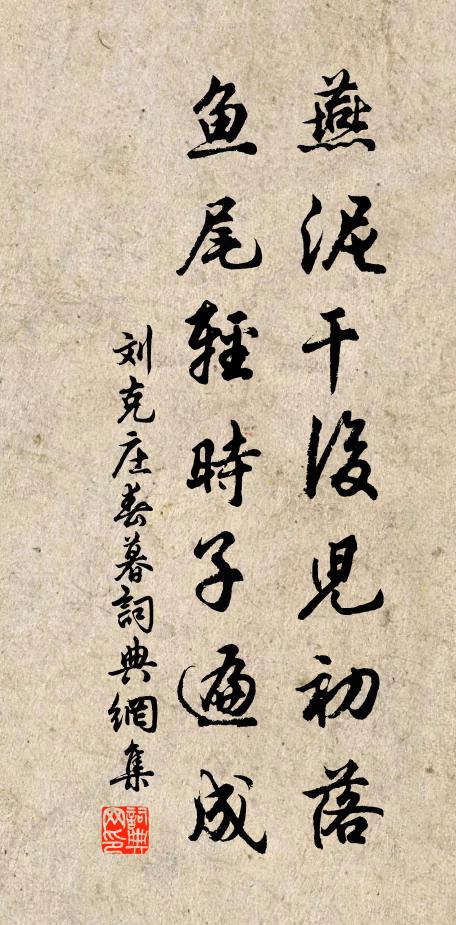 燕泥干後児初落
鱼尾輕時子遍成
刘克庄春暮詞典網集
詞典
网印